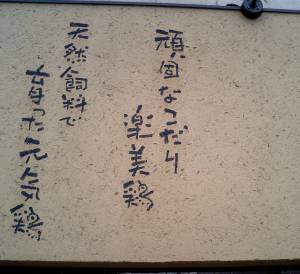 頑固なこだり
楽美鶏
天然飼料で
育った元気鶏